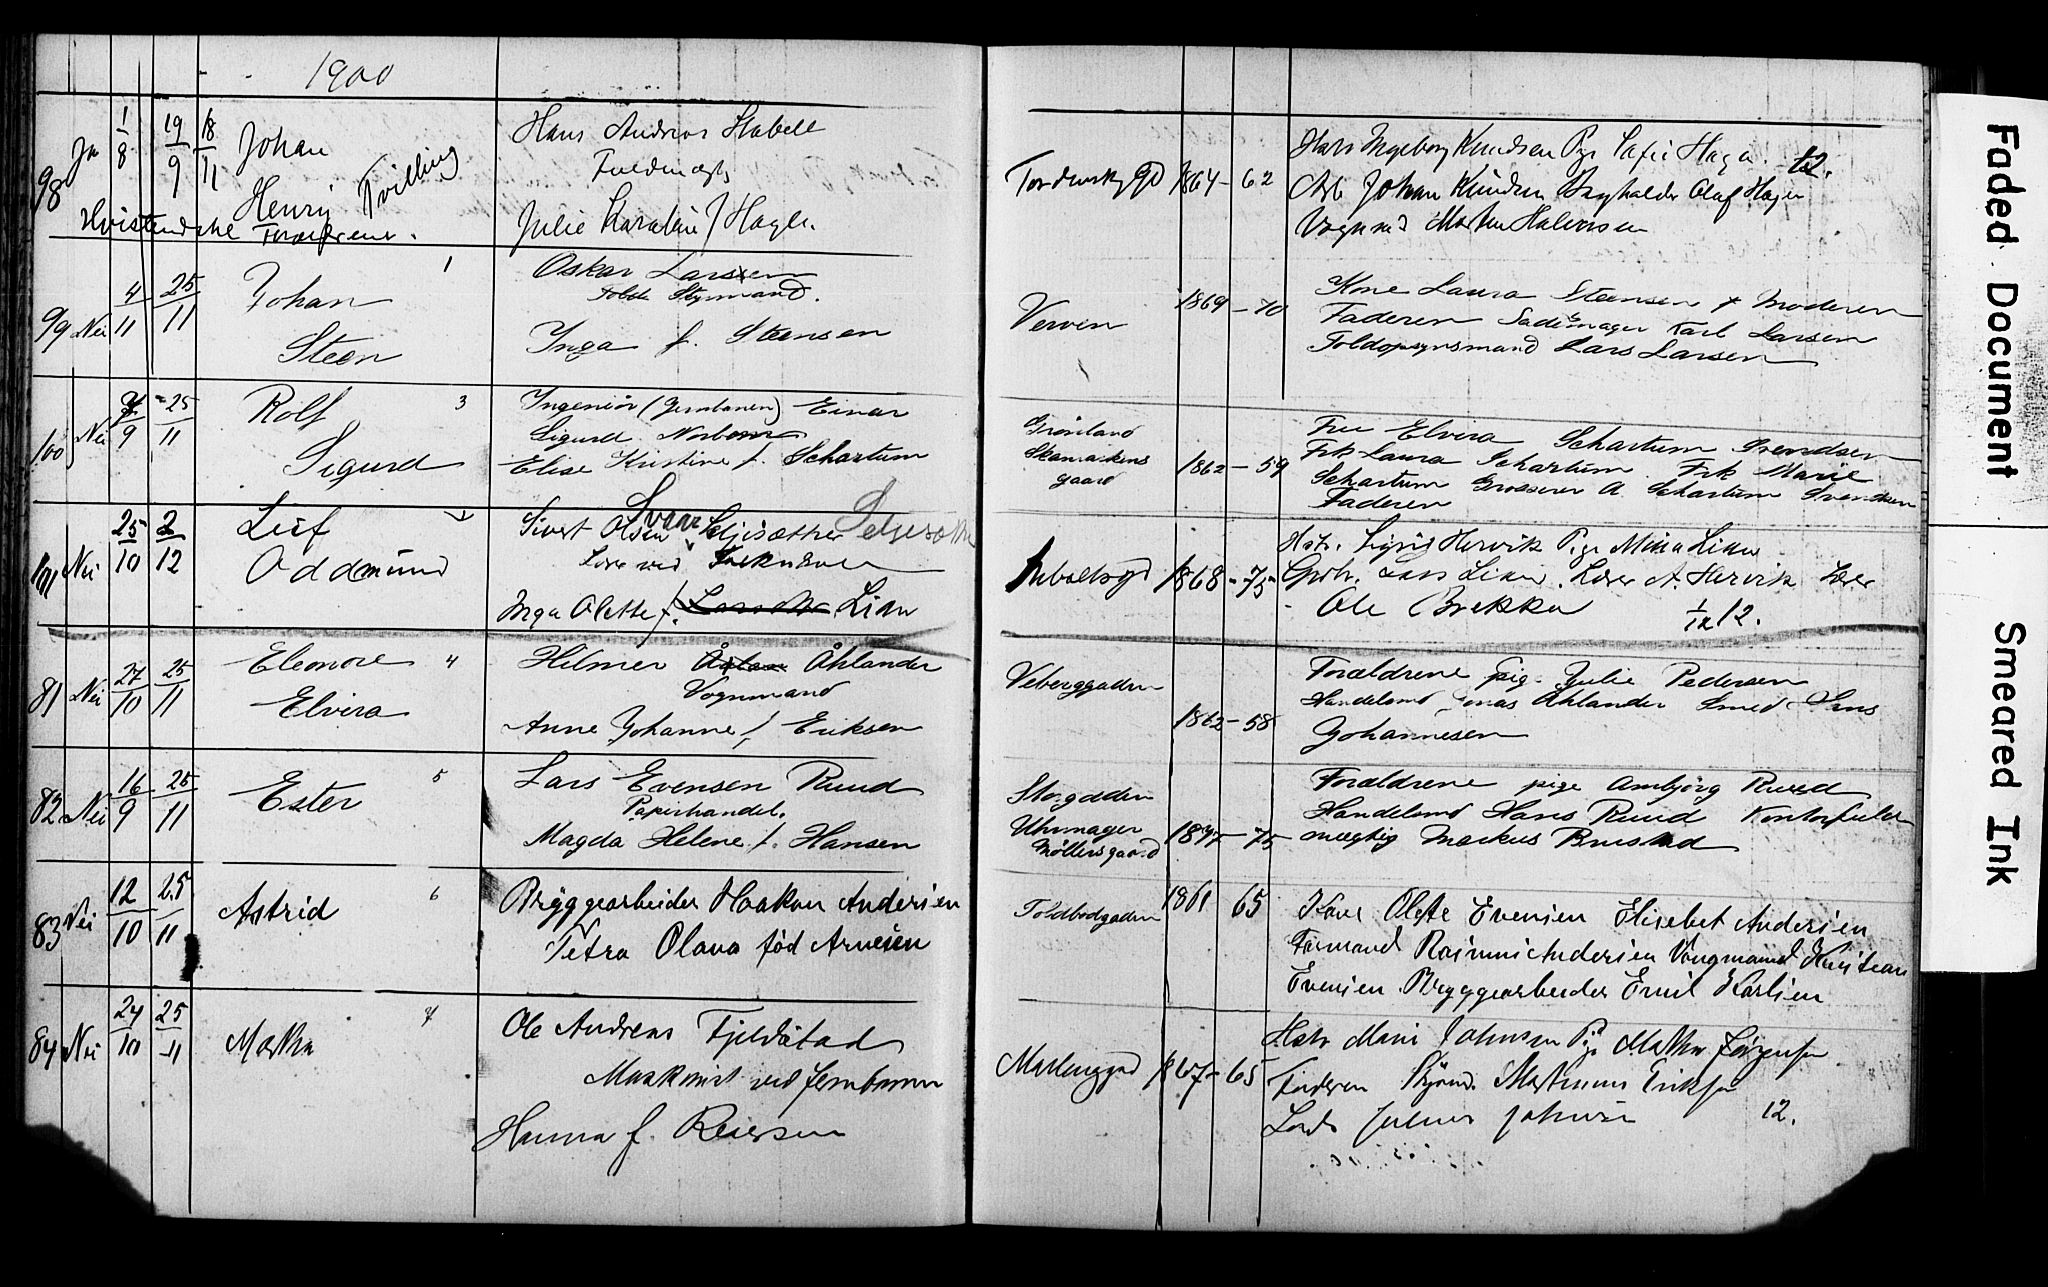 1900
98 Ja 1/8 19/9 18/11 Johan
Henry Tvilling
Hans Andreas Stabell
Fuldmægt.
Julie Karoline f Hagle.
1864 - 62
Hstr Ingeborg Knudsen Pge Hagen
Arb Johan Knudsen Olaf Hagen
Vognmd Martin Halvorsen
12.
99 Nei 4/11 25/11 Johan 1
Steen
Oskar Larssen
Styrmand.
Inga f. Steensen
Verven 1869 - 70
Kone Laura Steensen + Moderen
Faderen Sadelmager Karl Larsen
Toldopsynsmand Lars Larsen
100 Nei 7/9 25/11 Rolf 3
Sigurd
Ingeniør (Jernbanen) Einar
Sigurd Norbom
Elise Kristine f. Schartum
Grønland
gaard
1862 - 59
Fru Elvira Schartum Svendsen
Frk Laura Schartum Frk Marie
Schartum Grosserer A. Schartum Svendsen
Faderen
101 Nei 25/10 2/12 Leif
Oddmund
Sivert Olsen Seljesæther
Inga Olette f. Lian
1868 - 75
Hstr. Sigrid Hervik Pge Mina Lian
Gbr. Lars Lian. Lærer A. Hervik Lærer
- Ole Brekka 1/12 12.
81 Nei 27/10 25/11 Eleonore 4
Elvira
Hilmer Åhlander
Vognmand
Anne Johanne f. Eriksen
1862 - 58
Forældrene pig. Julie Pedersen
Handelsmd Jonas Åhlander Smed Hans
Johannesen
82 Nei 16/9 25/11 Ester 5
Lars Evensen Ruud
Papirhandel.
Magda Helene f. Hansen
Storgaden
Uhrmager
Møllersgaard
1877 - 75
Forældrene pige Ambjørg Ruud
Handelsmd Hans Ruud Kontorfuld
mægtig Markus Brustad
83 Nei 12/10 25/11 Astrid 6
Bryggearbeider Haakon Andersen
Petra Olava fød Arnesen
Toldbodgaden 1861 65
Kone Olefe Evensen Elisebet Andersen
Formand Andersen Vongmand Kristian
Evensen Bryggearbeider Emil Karlsen
84 Nei 24/10 25/11 Martha 7
Ole Andreas Fjeldstad
Maskinist ved Jernbanen
Hanna f. Reiersen
1867 - 65
Hstr Marie Johnsen Pge Martha Jørgensen
Faderen Martinus Eriksen
Lods Julius Johnsen 12.
Faded Document
Smeared Ink